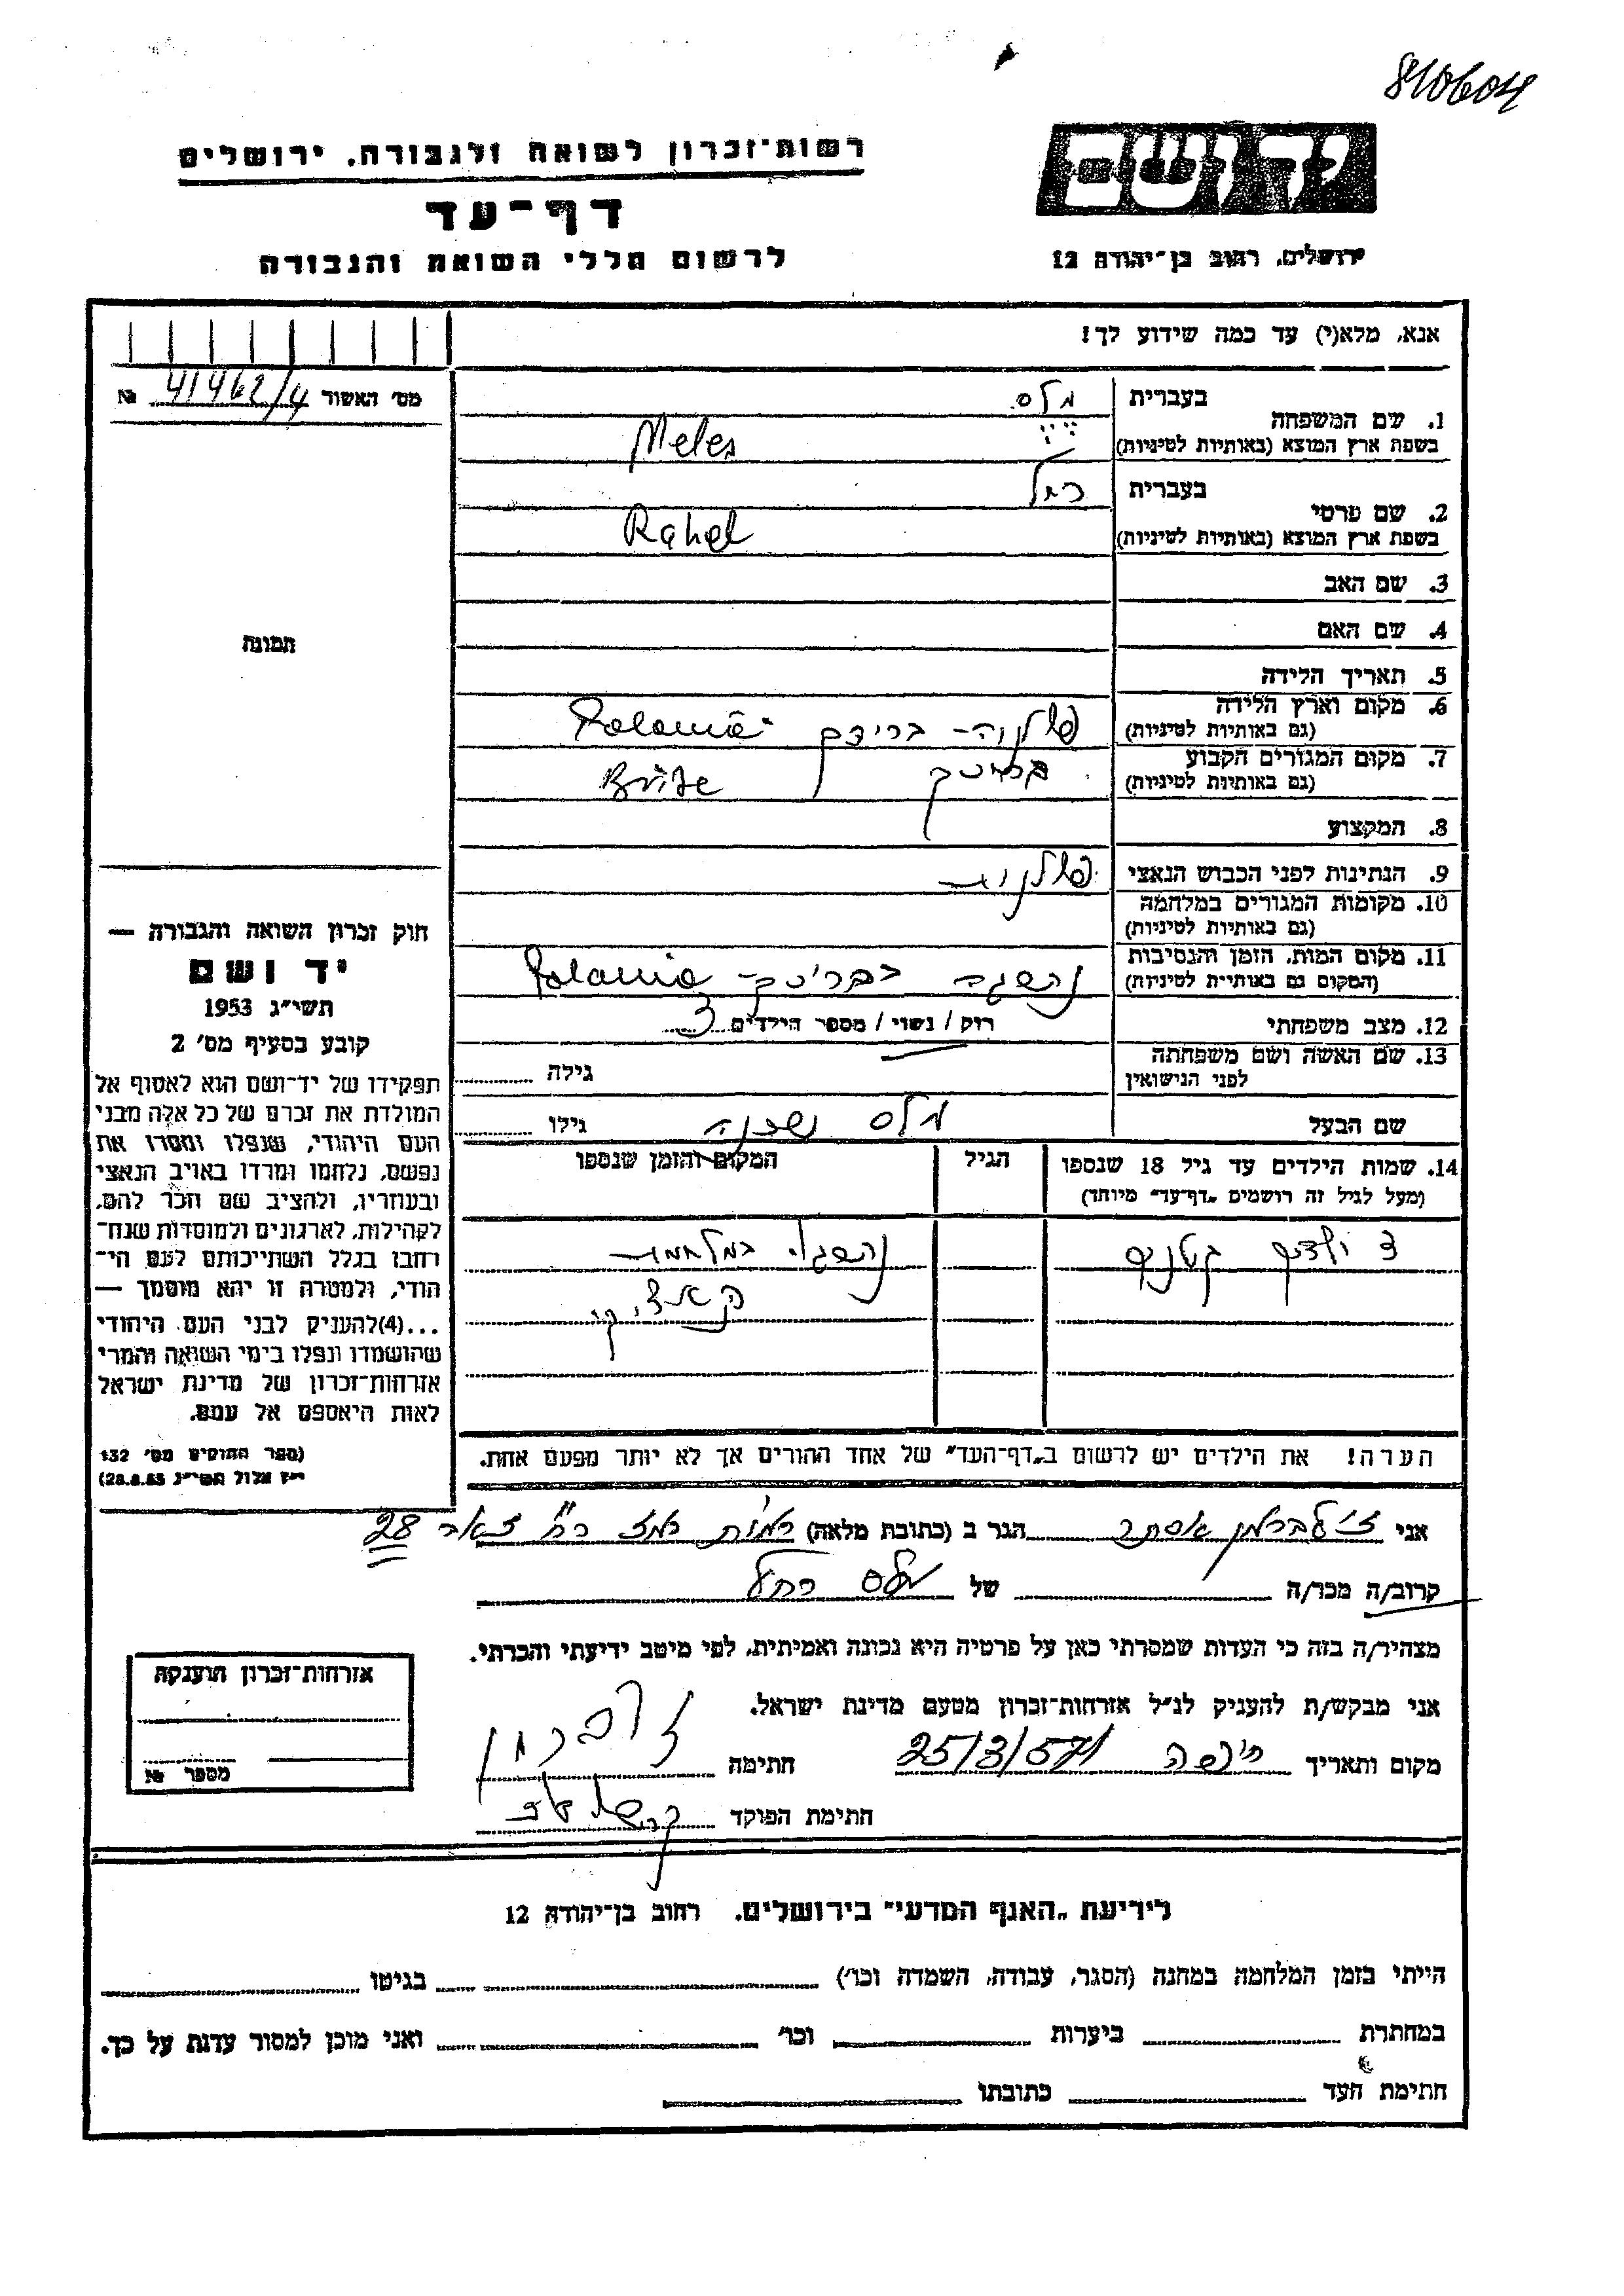 810604
יד ושם
רשות־זכרון לשואה ולגבורה, ירושלים
דף־עד
לרשום חללי השואה והגבורה
ירושלים, רחוב בן־יהודה 12
אנא, מלא(י) עד כמה שידוע לך!
מס׳ האשור 41462/4 №
1. שם המשפחה
בעברית מלס
בשפת ארץ המוצא (באותיות לטיניות) Meles
2. שם פרטי
בעברית רחל
בשפת ארץ המוצא (באותיות לטיניות) Rahel
3. שם האב
4. שם האם
תמונה
5. תאריך הלידה
6. מקום וארץ הלידה
(גם באותיות לטיניות)
7. מקום המגורים הקבוע
(גם באותיות לטיניות)
8. המקצוע
9. הנתינות לפני הכבוש הנאצי
10. מקומות המגורים במלחמה
(גם באותיות לטיניות)
11. מקום המות, הזמן והנסיבות
(המקום גם באותיות לטיניות)
12. מצב משפחתי רוק / נשוי / מספר הילדים 3
13. שם האשה ושם משפחתה
לפני הנישואין גילה
שם הבעל מלס גילו
14. שמות הילדים עד גיל 18 שנספו הגיל המקום והזמן שנספו
(מעל לגיל זה רושמים „דף־עד” מיוחד)
3 ילדים קטנים
חוק זכרון השואה והגבורה —
יד ושם
תשי״ג 1953
קובע בסעיף מס׳ 2
תפקידו של יד־ושם הוא לאסוף אל
המולדת את זכרם של כל אלה מבני
העם היהודי, שנפלו ומסרו את
נפשם, נלחמו ומרדו באויב הנאצי
ובעוזריו, ולהציב שם וזכר להם,
לקהילות, לארגונים ולמוסדות שנח־
רחבו בגלל השתייכותם לעם הי־
הודי, ולמטרה זו יהא מוסמך —
...(4)להעניק לבני העם היהודי
שהושמדו ונפלו בימי השואה והמרי
אזרחות־זכרון של מדינת ישראל
לאות היאספם אל עמם.
(ספר החוקים מס׳ 132
י״ז אלול תשי״ג 28.8.53)
הערה! את הילדים יש לרשום ב„דף־העד” של אחד ההורים אך לא יותר מפעם אחת.
אני זילברמן אסתר הגר ב (כתובת מלאה) רמת רמז 28
קרוב/ה מכר/ה של מלס רחל
מצהיר/ה בזה כי העדות שמסרתי כאן על פרטיה היא נכונה ואמיתית, לפי מיטב ידיעתי והכרתי.
אני מבקש/ת להעניק לנ״ל אזרחות־זכרון מטעם מדינת ישראל.
מקום ותאריך חיפה 25/3/57 חתימה
חתימת הפוקד
אזרחות־זכרון הוענקה
מספר №
לידיעת „האגף המדעי” בירושלים, רחוב בן־יהודה 12
הייתי בזמן המלחמה במחנה (הסגר, עבודה, השמדה וכו׳) בגיטו
במחתרת ביערות וכו׳ ואני מוכן למסור עדות על כך.
חתימת העד כתובתו